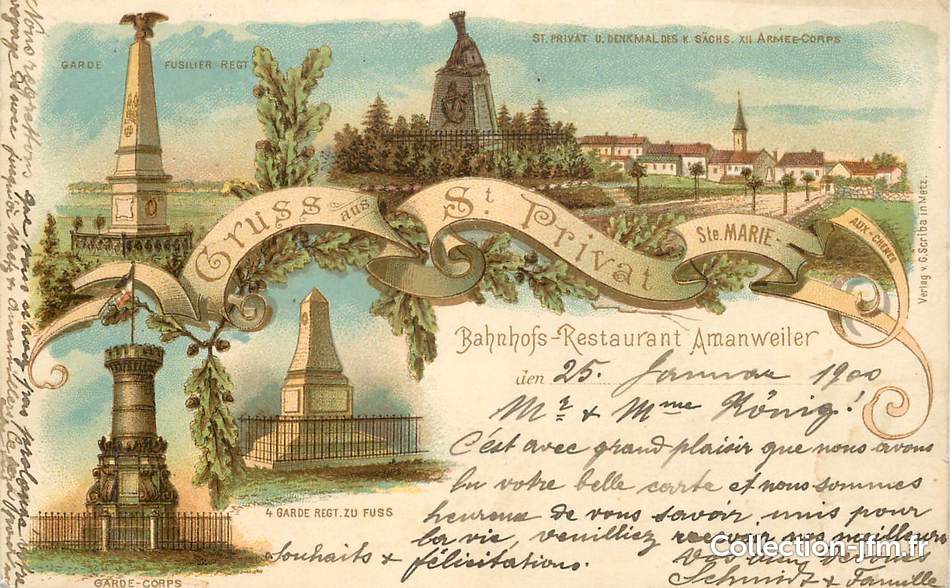 GARDE FUSILIER REGT
ST. PRIVAT U. DENKMAL DES K. SÄCHS. XII ARMEE-CORPS
Gruss aus St. Privat
Ste. MARIE-
AUX-CHENES
Verlag v. G. Scriba in Metz.
Bahnhofs-Restaurant Amanweiler
den 25. Januar 1900
Mr & Mme König!
C'est avec grand plaisir que nous avons
lu votre belle carte et nous sommes
heureux de vous savoir unis pour
la vie, veuilliez recevoir nos meilleurs
souhaits & félicitations.
Schmitz & Famille
4 GARDE REGT. ZU FUSS
GARDE-CORPS
Nous regrettons que nous
Collection-jfm.fr